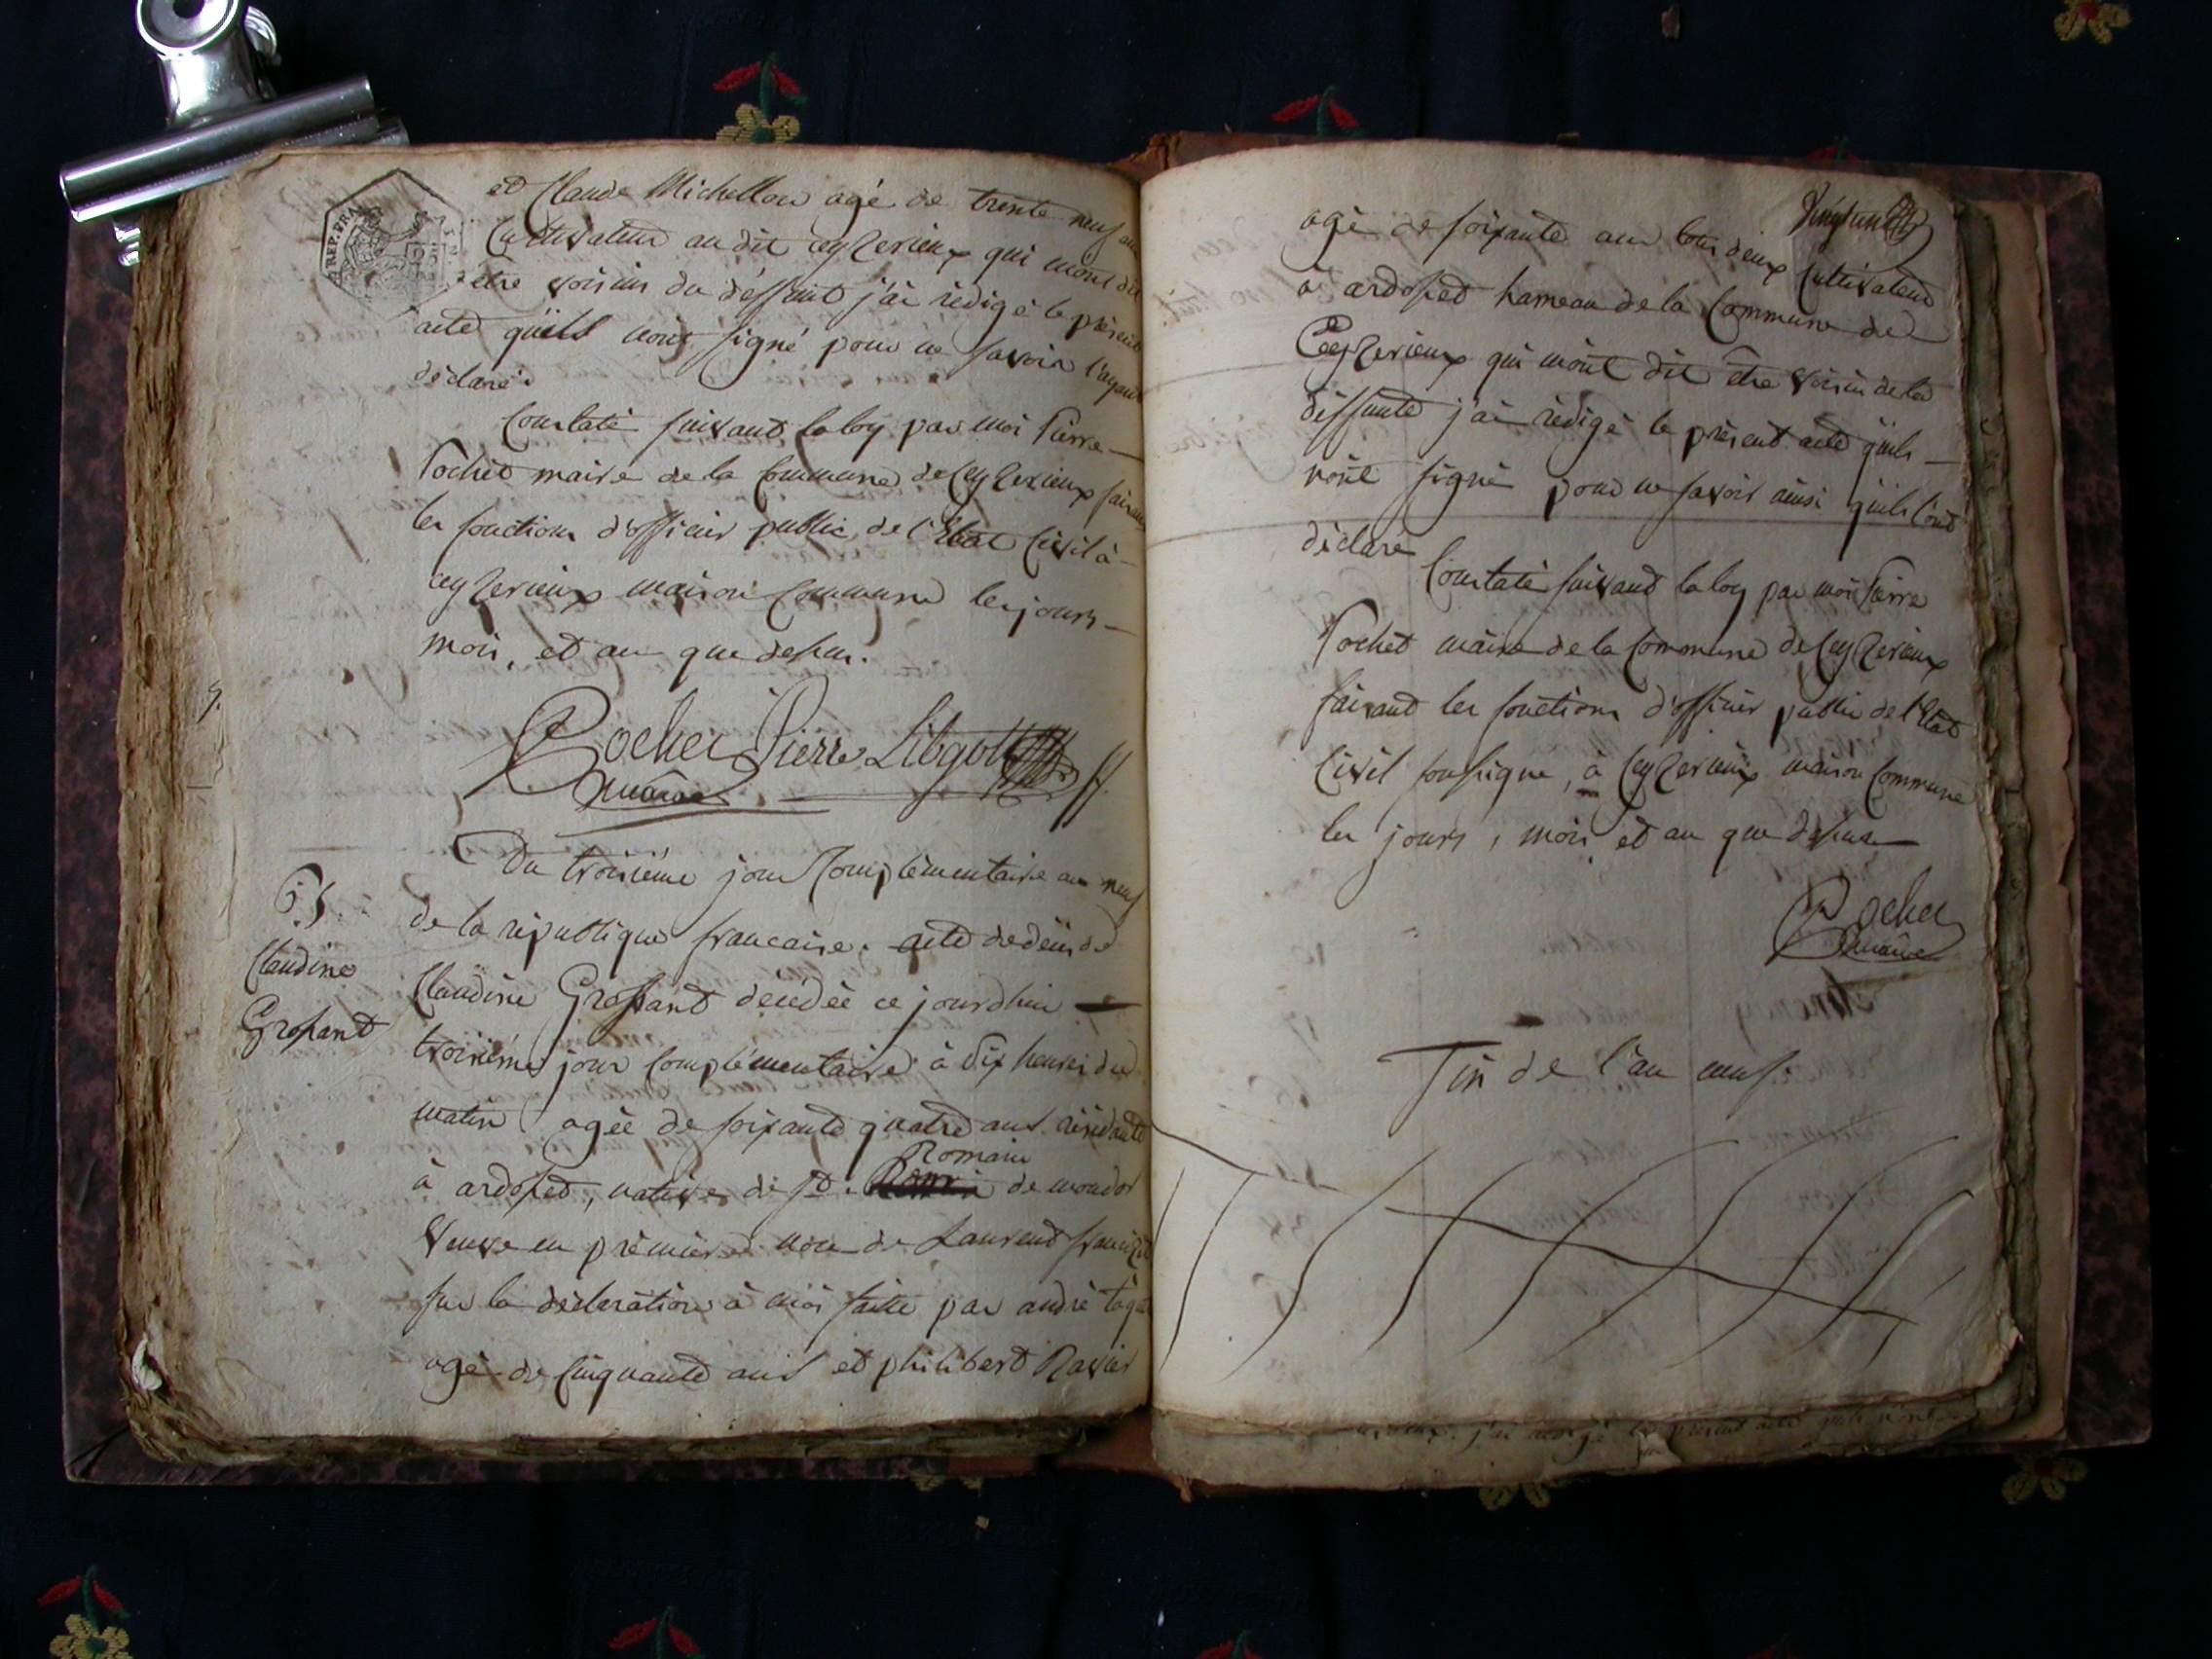 REP. FRA
et Claude Michellon agé de trente neuf ans
Cultivateur au dit Ceyzerieux qui mont dit
être voisins du déffunt j'ai rédigé le présent
acte quils nont signé pour ne savoir l'ayant
déclaré.
Constaté suivant la loy par moi Pierre
Pochet maire de la Commune de Ceyzerieux faisant
les fonctions d'officier public de l'Etat Civil à
Ceyzerieux maison Commune les jours
mois, et an que dessus.
Pochet Pierre Libgott
maire
Du troisiéme jour Complémentaire an neuf
65.
de la république francaise. acte de décès de
Claudine
Grossant
Claudine Grossant décédée ce jourdhui
troisiéme jour Complémentaire à dix heures du
matin agée de soixante quatre ans résidante
Romain
à ardosset, native de St. de mondor
Veuve en premiere noce de Laurent
sur la déclaration à moi faite par andré
agé de Cinquante ans et philibert Ravier
agé de soixante ans tous deux Cultivateur
à ardosset hameau de la Commune de
Ceyzerieux qui m'ont dit être voisin de la
déffunte j'ai rédigé le présent acte quils
nont signé pour ne savoir ainsi quils l'ont
déclaré
Constaté suivant la loy par moi Pierre
Pochet maire de la Commune de Ceyzerieux
faisant les fonctions d'officier public de l'Etat
Civil soussigné, à Ceyzerieux maison Commune
les jours, mois et an que dessus
Pochet
maire
Fin de l'an neuf.
j'ai rédigé le présent acte quils n'ont